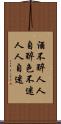 酒不醉人人
自醉色不迷
人人自迷